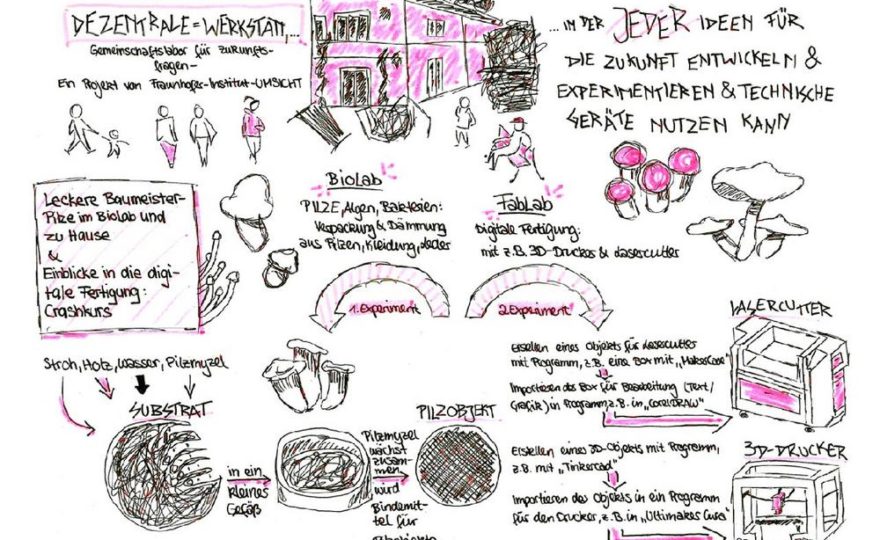 DEZENTRALE = WERKSTATT,...
Gemeinschaftslabor für Zukunfts-
fragen-
Ein Projekt von Fraunhofer-Institut-UMSICHT
...IN DER JEDER IDEEN FÜR
DIE ZUKUNFT ENTWICKELN &
EXPERIMENTIEREN & TECHNISCHE
GERÄTE NUTZEN KANN
Leckere Baumeister-
Pilze im BioLab und
zu Hause
&
Einblicke in die digi-
tale Fertigung:
Crashkurs
BioLab
PILZE, Algen, Bakterien:
Verpackung & Dämmung
aus Pilzen, Kleidung, Leder
FabLab
Digitale Fertigung:
mit z.B. 3D-Drucker & Lasercutter
1. Experiment
2. Experiment
Stroh, Holz, Wasser, Pilzmyzel
SUBSTRAT
in ein
kleines
Gefäß
Pilzmyzel
wächst
zusam-
men
wird
Bindemit-
tel für
PILZOBJEKT
LASERCUTTER
Erstellen eines Objekts für Lasercutter
mit Programm, z.B. eine Box mit „MakerCase"
Importieren der Box für Bearbeitung (Text/
Grafik) in Programm, z.B. in „CorelDRAW"
3D-DRUCKER
Erstellen eines 3D-Objekts mit Programm,
z.B. mit „Tinkercad"
Importieren des Objekts in ein Programm
für den Drucker, z.B. in „Ultimaker Cura"